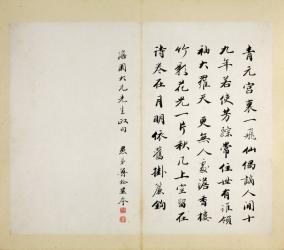 青元宮裏一飛仙偶謫人間十
九年若使芳蹤常住世有誰領
袖大羅天 更無人處澹香樓
竹影花光一片秋几上空留在
詩卷在月明依舊掛簾鉤
澹園大兄先生政句
愚弟